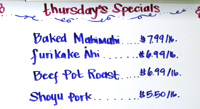 Thursday's Specials
Baked Mahimahi....$7.99/lb.
furikake Ahi ........$6.99/lb.
Beef Pot Roast....$6.99/lb.
Shoyu Pork........$5.50/lb.